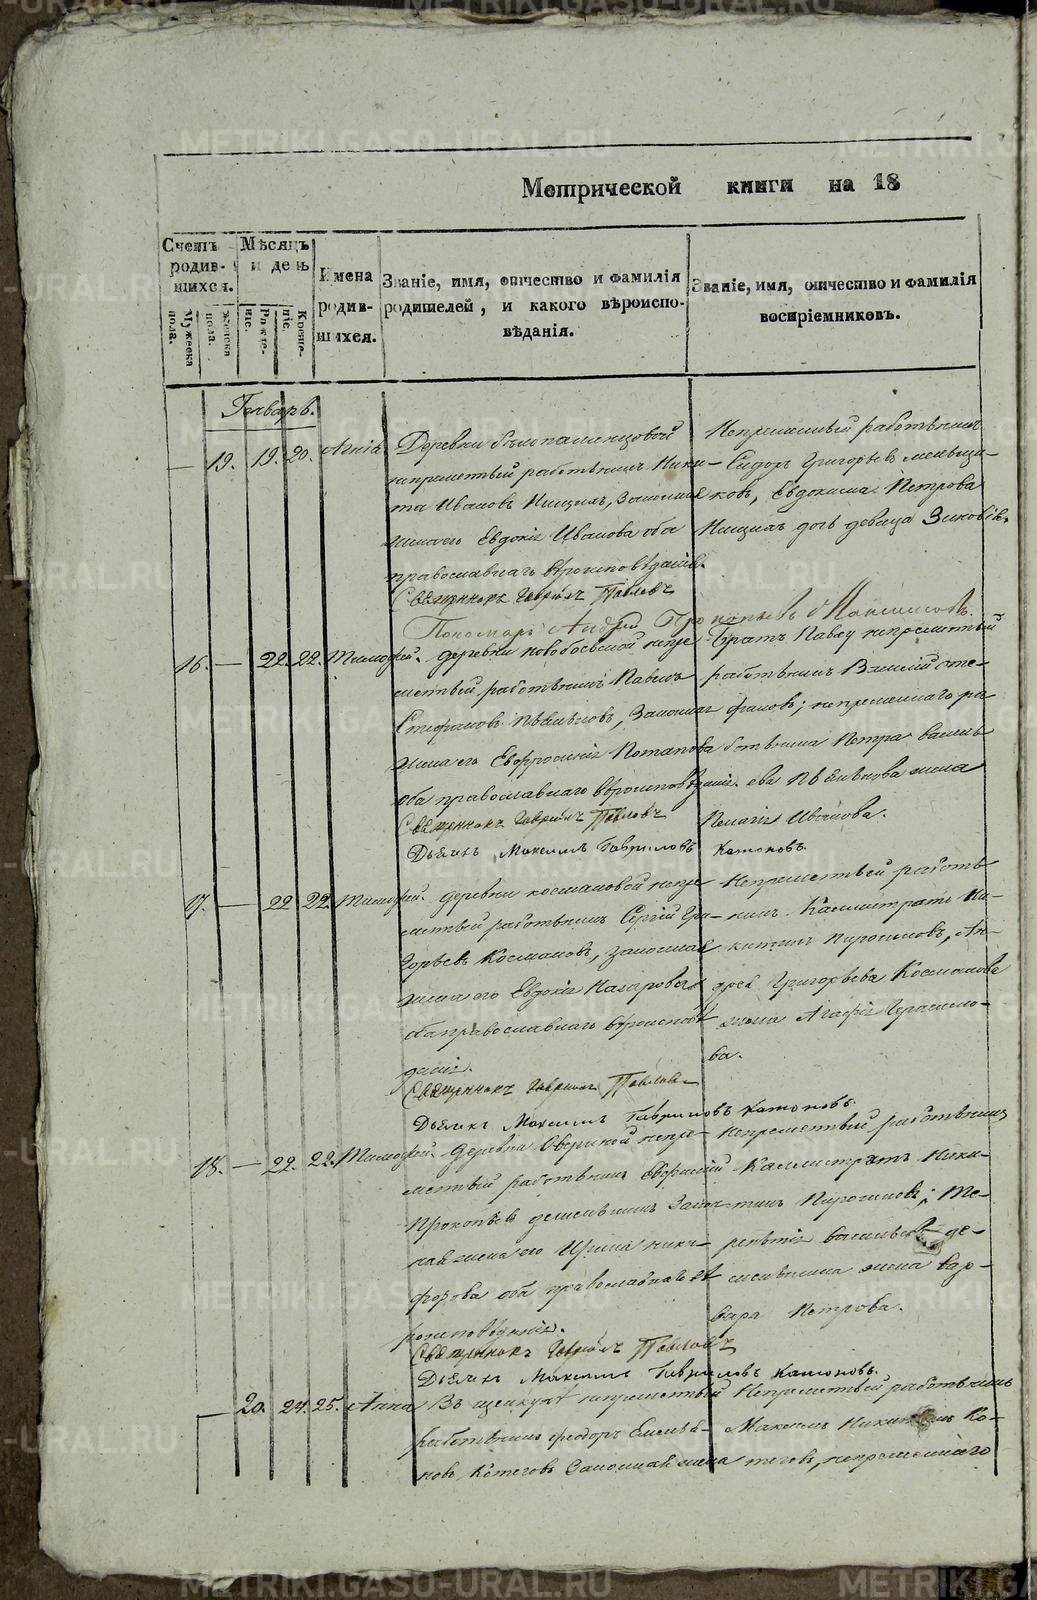 Метрической книги на 18
Счетъ родив-шихся.
Мужеска пола.
женска пола.
Мѣсяцъ и день
Рожде-ніе.
Креще-ніе.
Имена родив-шихся.
Званіе, имя, отчество и фамилія родителей, и какого вѣроиспо-вѣданія.
Званіе, имя, отчество и фамилія воспріемниковъ.
Генварь.
— 19. 19. 20. Агнія
Деревни
непременный работникъ Ники-
та Ивановъ Ницынъ, Законная
жена его Евдокія Иванова оба
православнаго вѣроисповѣданія.
Священникъ Гавріилъ Павловъ
Пономарь Андрей Прокопьевъ
Непременный работникъ
Сидоръ Григорьевъ
ковъ, Евдокима Петрова
дочь девица Зиновія.
16. — 22. 22. Тимофей.
деревни новобоевской непре-
менный работникъ Павелъ
Стефановъ Законная
жена его Евфросинія Потапова
оба православнаго вѣроисповѣданія.
Священникъ Гавріилъ Павловъ
Дьячекъ Максимъ Гавриловъ Катоновъ.
Братъ Павлу непременный
работникъ Василій Сте-
фановъ; непременнаго ра-
ботника Петра Василь-
ева жена
Пелагія Иванова.
17. — 22 22. Тимофей.
деревни космаковой непре-
менный работникъ Сергій Гри-
горьевъ Космаковъ, законная
жена его Евдокія Назарова
оба православнаго вѣроисповѣ-
данія.
Священникъ Гавріилъ Павловъ
Дьячекъ Максимъ Гавриловъ Катоновъ.
Непременный работ-
никъ Каллистратъ Ни-
китинъ Пироговъ, Ан-
дрея Григорьева Космакова
жена Агафія Герасимо-
ва.
18. — 22. 22. Тимофей.
Деревни непре-
менный работникъ Ефремій
Прокопьевъ Закон-
ная жена его Ирина Ники-
форова оба православнаго вѣ-
роисповѣданія.
Священникъ Гавріилъ Павловъ
Дьячекъ Максимъ Гавриловъ Катоновъ.
Непременный работникъ
Каллистратъ Ники-
тинъ Пироговъ; Те-
рентія Васильева де-
жена Вар-
вара Петрова.
— 20. 24. 25. Анна
непременный
работникъ Федоръ Емелья-
новъ Котеговъ Законная жена
Непременный работникъ
Максимъ Никитинъ Ко-
теговъ, непременнаго
METRIKI.GASO-URAL.RU